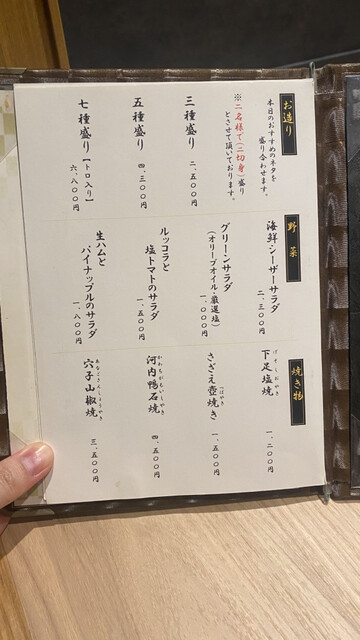 お造り
本日のおすすめのネタを
盛り合わせます。
※二名様で(二切身)盛り
とさせて頂いております。
三種盛り
二、五〇〇円
五種盛り
四、三〇〇円
七種盛り【トロ入り】
六、八〇〇円
野菜
海鮮シーザーサラダ
二、三〇〇円
グリーンサラダ
(オリーブオイル・厳選塩)
一、〇〇〇円
ルッコラと
塩トマトのサラダ
一、五〇〇円
生ハムと
パイナップルのサラダ
一、八〇〇円
焼き物
げそしおやき
下足塩焼
一、二〇〇円
つぼやき
さざえ壺焼き
一、五〇〇円
かわちがもいしやき
河内鴨石焼
四、五〇〇円
あなごさんしょうやき
穴子山椒焼
三、五〇〇円